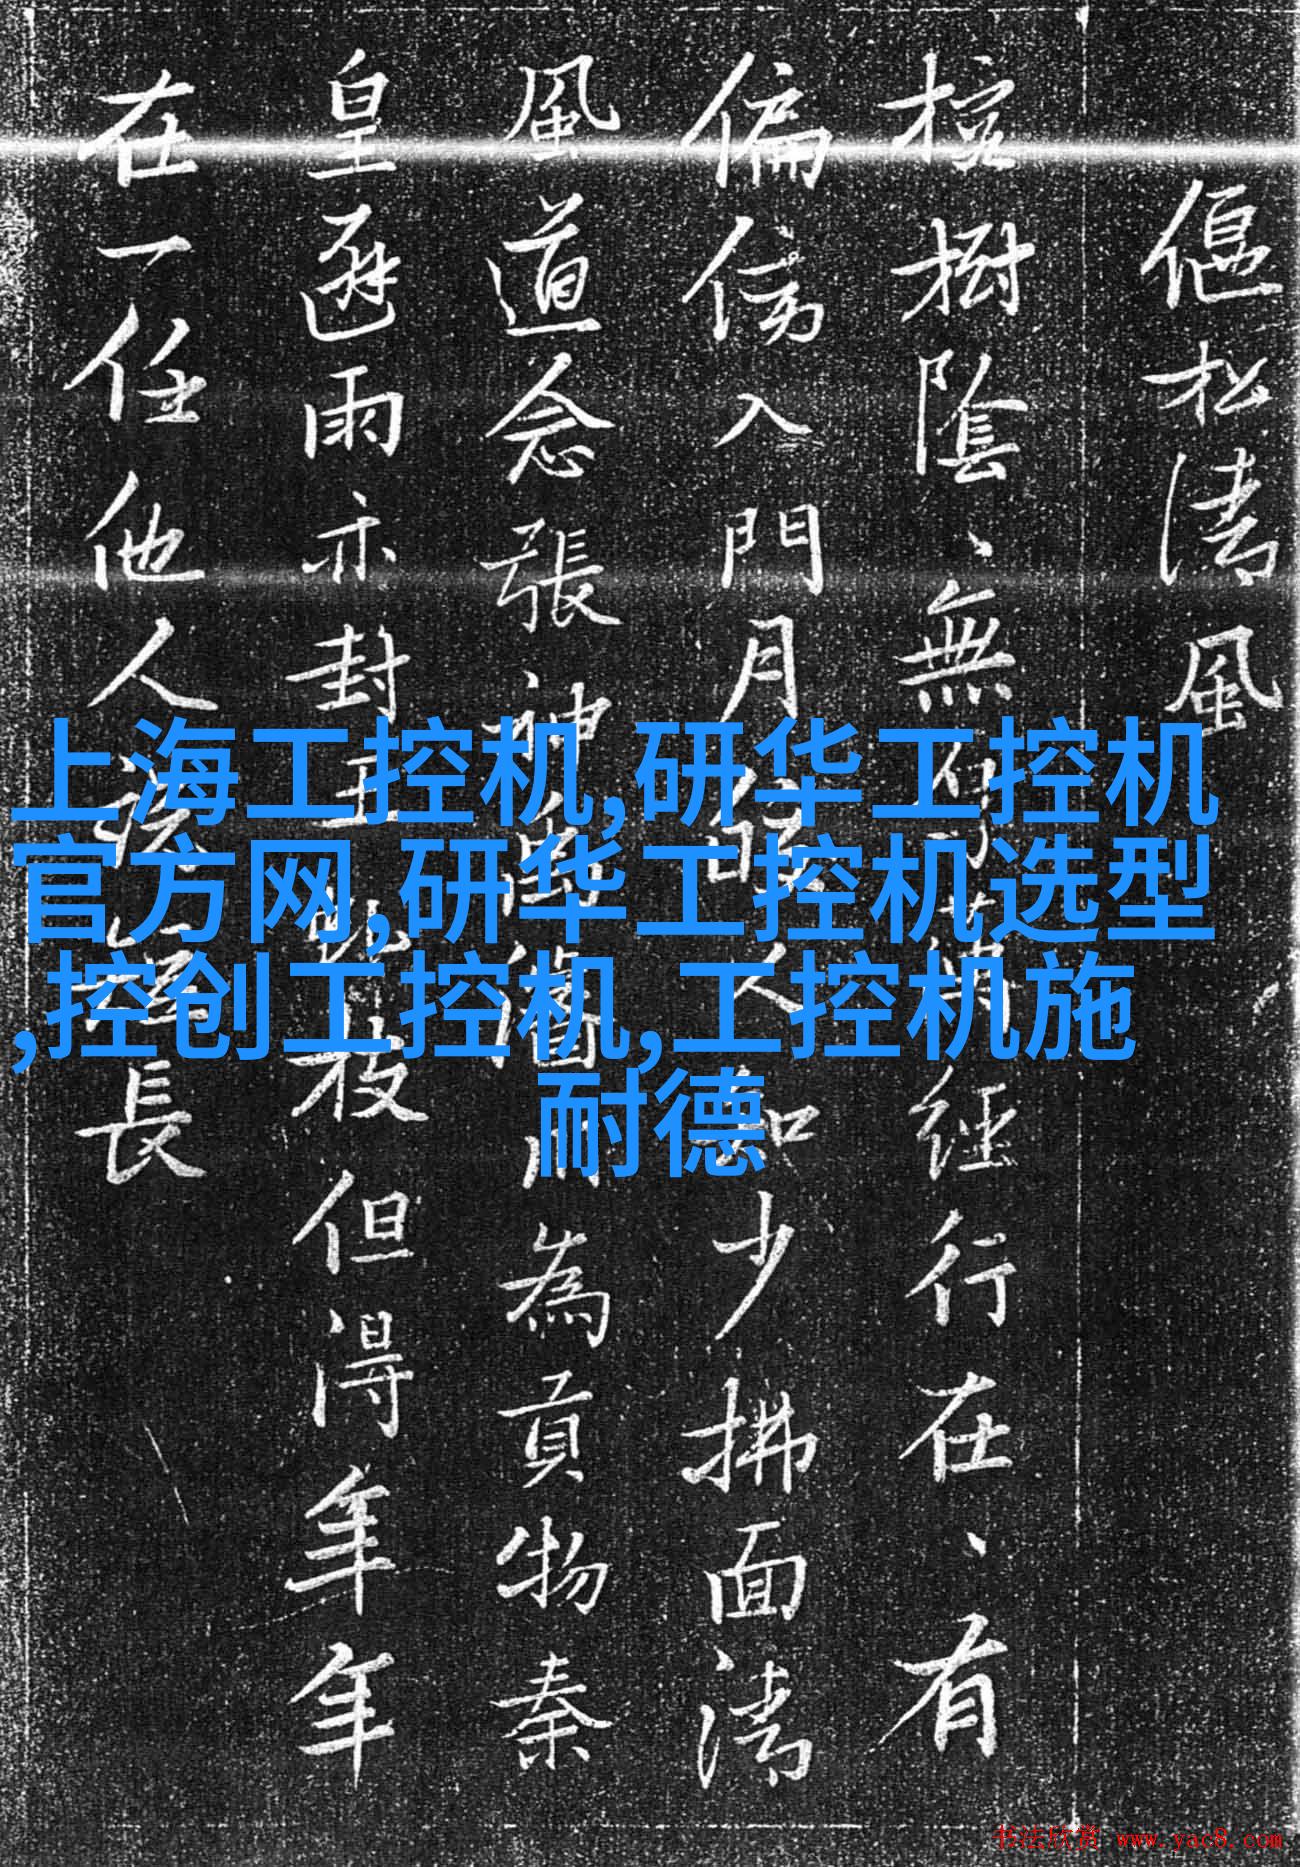 偃松清風
樹陰、無
經行在、有
偏
入門月
人知少拂面清
風道念張神
為貢物秦
皇
雨亦封五
枝但得年年
在一任他人
長
上海工控机,研华工控机
官方网,研华工控机选型
,控创工控机,工控机施
耐德
书法欣赏 www.yac8.com